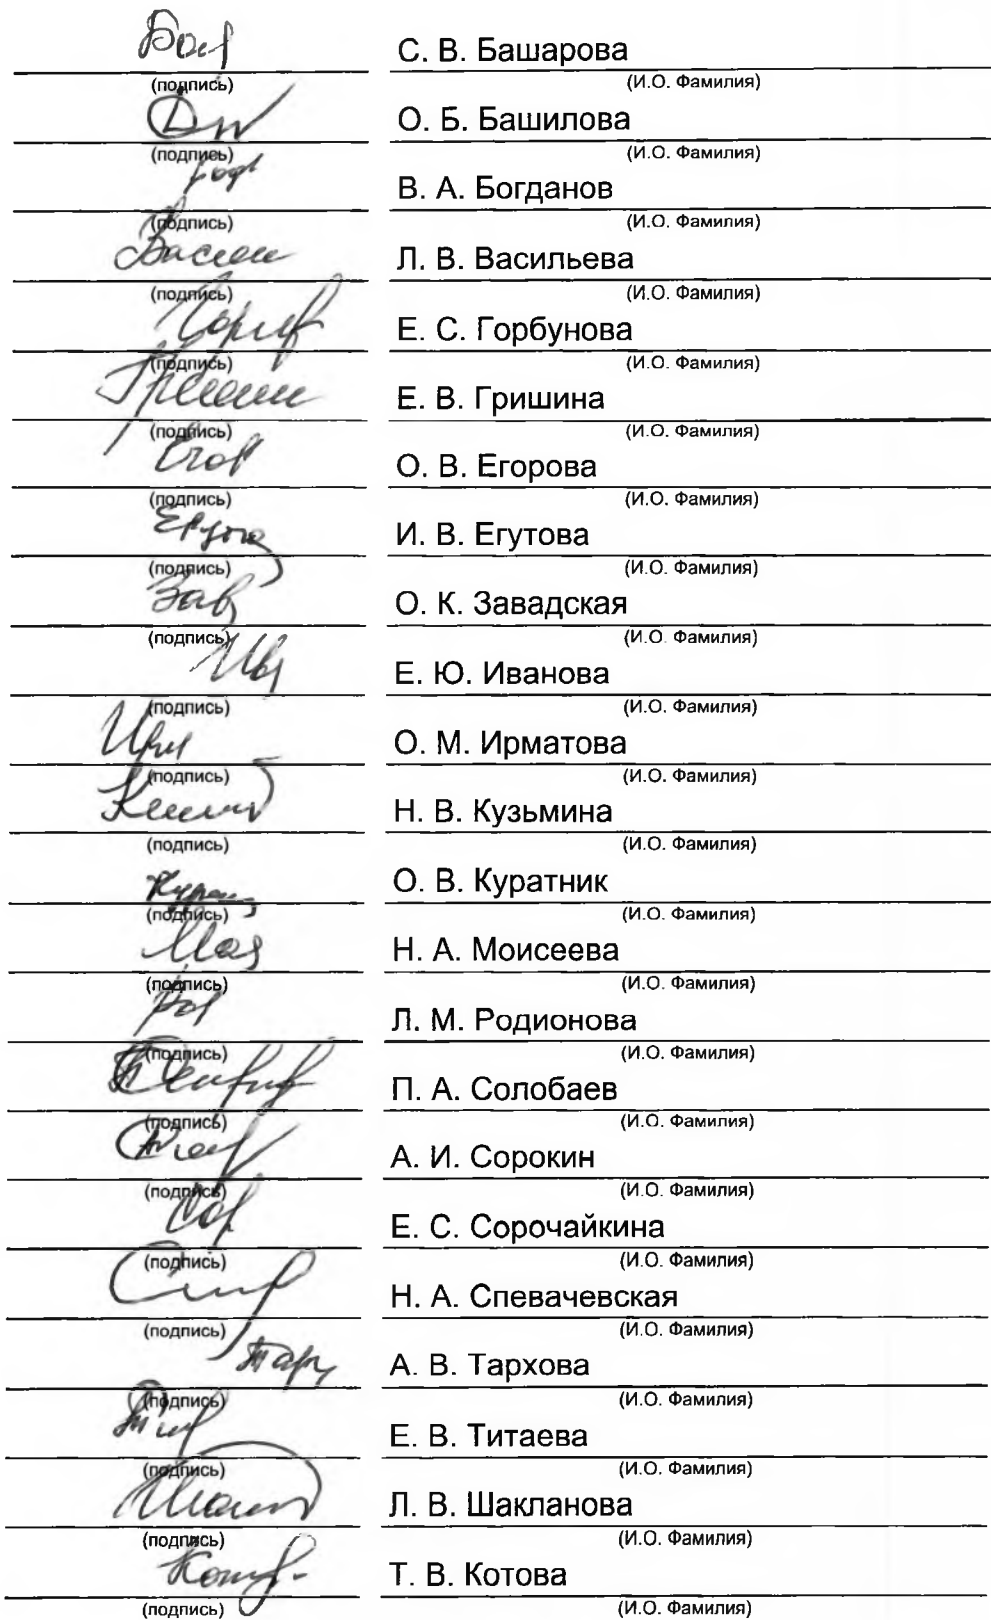 С. В. Башарова
(подпись) (И.О. Фамилия)
О. Б. Башилова
(подпись) (И.О. Фамилия)
В. А. Богданов
(подпись) (И.О. Фамилия)
Л. В. Васильева
(подпись) (И.О. Фамилия)
Е. С. Горбунова
(подпись) (И.О. Фамилия)
Е. В. Гришина
(подпись) (И.О. Фамилия)
О. В. Егорова
(подпись) (И.О. Фамилия)
И. В. Егутова
(подпись) (И.О. Фамилия)
О. К. Завадская
(подпись) (И.О. Фамилия)
Е. Ю. Иванова
(подпись) (И.О. Фамилия)
О. М. Ирматова
(подпись) (И.О. Фамилия)
Н. В. Кузьмина
(подпись) (И.О. Фамилия)
О. В. Куратник
(подпись) (И.О. Фамилия)
Н. А. Моисеева
(подпись) (И.О. Фамилия)
Л. М. Родионова
(подпись) (И.О. Фамилия)
П. А. Солобаев
(подпись) (И.О. Фамилия)
А. И. Сорокин
(подпись) (И.О. Фамилия)
Е. С. Сорочайкина
(подпись) (И.О. Фамилия)
Н. А. Спевачевская
(подпись) (И.О. Фамилия)
А. В. Тархова
(подпись) (И.О. Фамилия)
Е. В. Титаева
(подпись) (И.О. Фамилия)
Л. В. Шакланова
(подпись) (И.О. Фамилия)
Т. В. Котова
(подпись) (И.О. Фамилия)